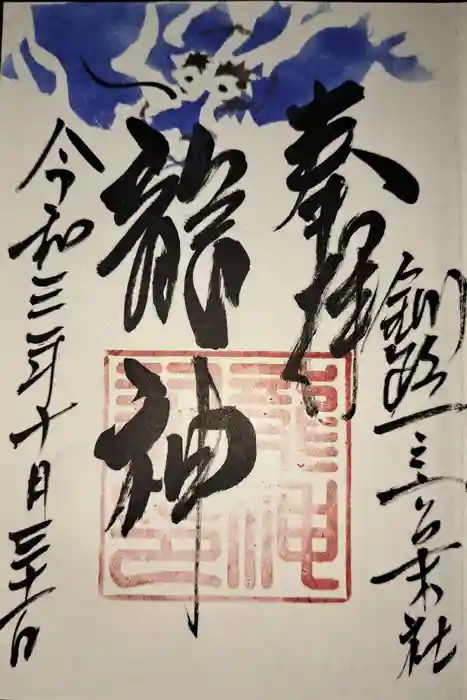 奉拝
釧路一之宮末社
龍神
令和三年十月三十一日